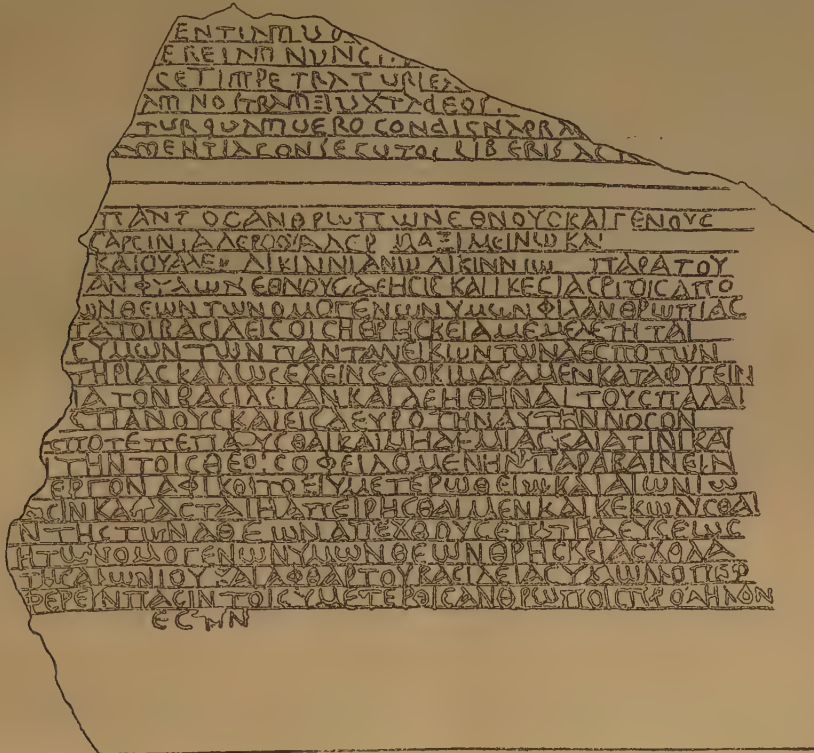 ENTIAMUO
EREINMNUNCI
CETIMPETRATURIEA
AMNOSTRAMEIUXTADEOS
TURQUAMUEROCONDIGNAPRA
AMENTIACONSECUTOSLIBERISAC
ΠΑΝΤΟϹΑΝΘΡΩΠΩΝΕΘΝΟΥϹΚΑΙΓΕΝΟΥϹ
ΜΑΞΙΜΕΙΝΩΚΑΙ
ΛΙΚΙΝΝΙΑΝΩΛΙΚΙΝΝΙΩ ΠΑΡΑΤΟΥ
ΑΜΦΥΛΩΝΕΘΝΟΥϹΔΕΗϹΙϹΚΑΙΙΚΕϹΙΑϹΡΓΟΙϹΑΠΟ
ΩΝΘΕΩΝΤΩΝΟΜΟΓΕΝΩΝΥΜΩΝΦΙΛΑΝΘΡΩΠΙΑϹ
ΤΑΤΟΙΒΑϹΙΛΕΙϹΟΙϹΗΘΡΗϹΚΕΙΑΜΕΜΕΛΕΤΗΤΑΙ
ϹΥΜΩΝΤΩΝΠΑΝΤΑΝΕΙΚΩΝΤΩΝΔΕϹΠΟΤΩΝ
ΤΗΡΙΑϹΚΑΛΩϹΕΧΕΙΝΕΔΟΚΙΜΑϹΑΜΕΝΚΑΤΑΦΥΓΕΙΝ
ΙΑΤΟΝΒΑϹΙΛΕΙΑΝΚΑΙΔΕΗΘΗΝΑΙΤΟΥϹΠΑΛΑΙ
ϹΠΑΝΟΥϹΚΑΙΕΙϹΔΕΥΡΟΤΗΝΑΥΤΗΝΝΟϹΟΝ
ϹΠΟΤΕΠΕΠΑΥϹΘΑΙΚΑΙΜΗΔΕΜΙΑϹΚΑΙΑΤΙΝΙΚΑΙ
ΙΤΗΝΤΟΙϹΘΕΟΙϹΟΦΕΙΛΟΜΕΝΗΝΠΑΡΑΒΑΙΝΕΙΝ
ΕΡΓΟΝΑΦΙΚΟΙΤΟΕΙΥΜΕΤΕΡΩΘΕΙΩΚΑΙΑΙΩΝΙΩ
ΑϹΙΝΚΑΤΑϹΤΑΙΗΑΠΕΙΡΗϹΘΑΙΜΕΝΚΑΙΚΕΚΩΛΥϹΘΑΙ
ΝΤΗϹΤΩΝΑΘΕΩΝΑΠΕΧΘΟΥϹΕΠΙΤΗΔΕΥϹΕΩϹ
ΗΤΩΝΟΜΟΓΕΝΩΝΥΜΩΝΘΕΩΝΘΡΗϹΚΕΙΑϹΧΟΛΑ
ΤΗϹΑΙΩΝΙΟΥΚΑΙΑΦΘΑΡΤΟΥΒΑϹΙΛΕΙΑϹΥΜΩΝΟΠΕΡ
ΦΕΡΕΙΝΠΑϹΙΝΤΟΙϹΥΜΕΤΕΡΟΙϹΑΝΘΡΩΠΟΙϹΠΡΟΔΗΛΟΝ
ΕϹΤΙΝ